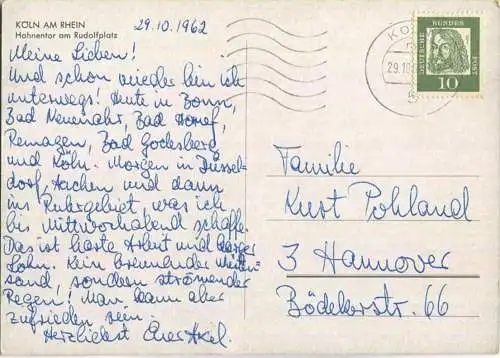 KÖLN AM RHEIN
Hahnentor am Rudolfplatz
29.10.1962
Meine Lieben!
Und schon wieder bin ich
unterwegs! Heute in Bonn,
Bad Neuenahr, Bad Honnef,
Remagen, Bad Godesberg
und Köln. Morgen in Düssel-
dorf, Aachen und dann
ins Ruhrgebiet, was ich
bis Mittwochabend schaffe.
Das ist harte Arbeit und karger
Lohn. Kein brennender
sand, sondern strömender
Regen! Man kann aber
zufrieden sein.
Herzlichst Euer Axel.
DEUTSCHE BUNDES POST
10
29.10
Familie
Kurt Pohland
3 Hannover
Bödekerstr. 66